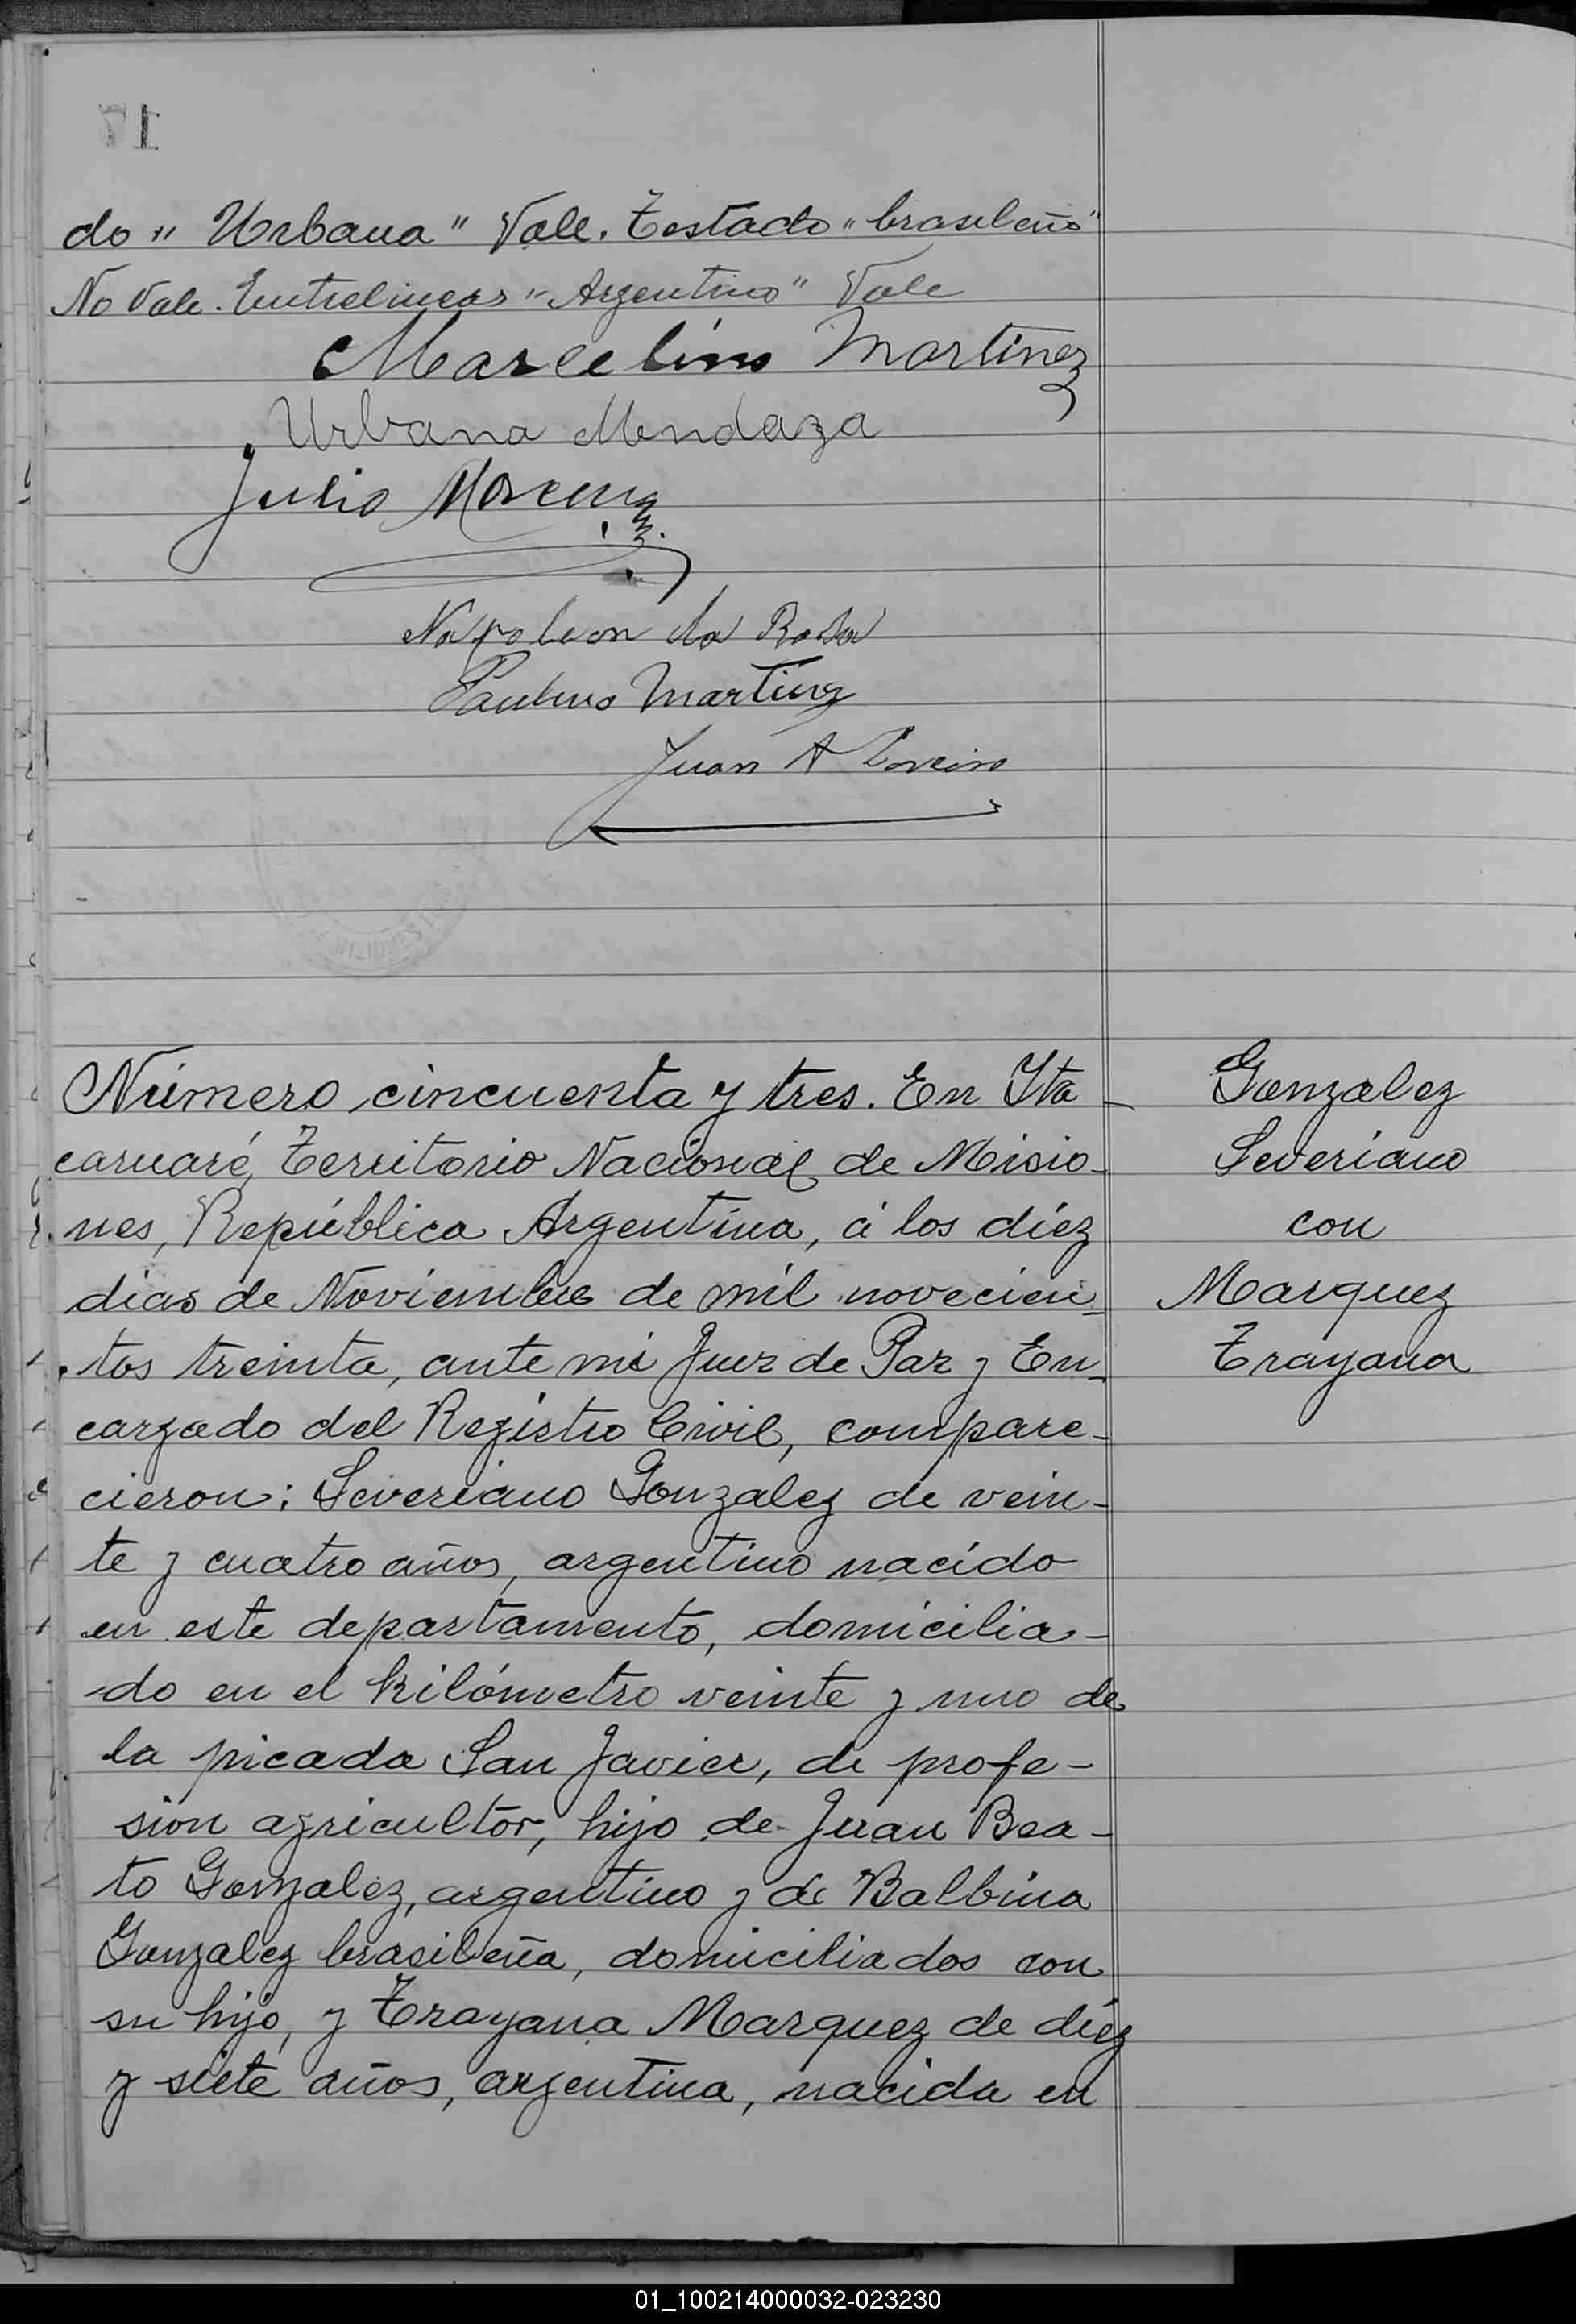 do " Urbana " Vale. Testado " brasileño "
No Vale. Entrelineas " Argentino " Vale
Marcelino Martinez
Urbana Mendaza
Julio Moreno
Napoleon da Rosa
Paulino Martinez
Juan A
Número cincuenta y tres. En Ita
caruaré, Territorio Nacional de Misio-
nes, República Argentina, á los diéz
dias de Noviembre de mil novecien-
tos treinta, ante mi Juez de Paz y En-
cargado del Registro Civil, compare-
cieron: Severiano Gonzalez de vein-
te y cuatro años, argentino nacido
en este departamento, domicilia-
do en el kilómetro veinte y uno de
la picada San Javier, de profe-
sion agricultor, hijo de Juan Bea-
to Gonzalez, argentino y de Balbina
Gonzalez brasileña, domiciliados con
su hijo, y Trayana Marquez de diéz
y siete años, argentina, nacida en
Gonzalez
Severiano
con
Marquez
Trayana
17
01_100214000032-023230